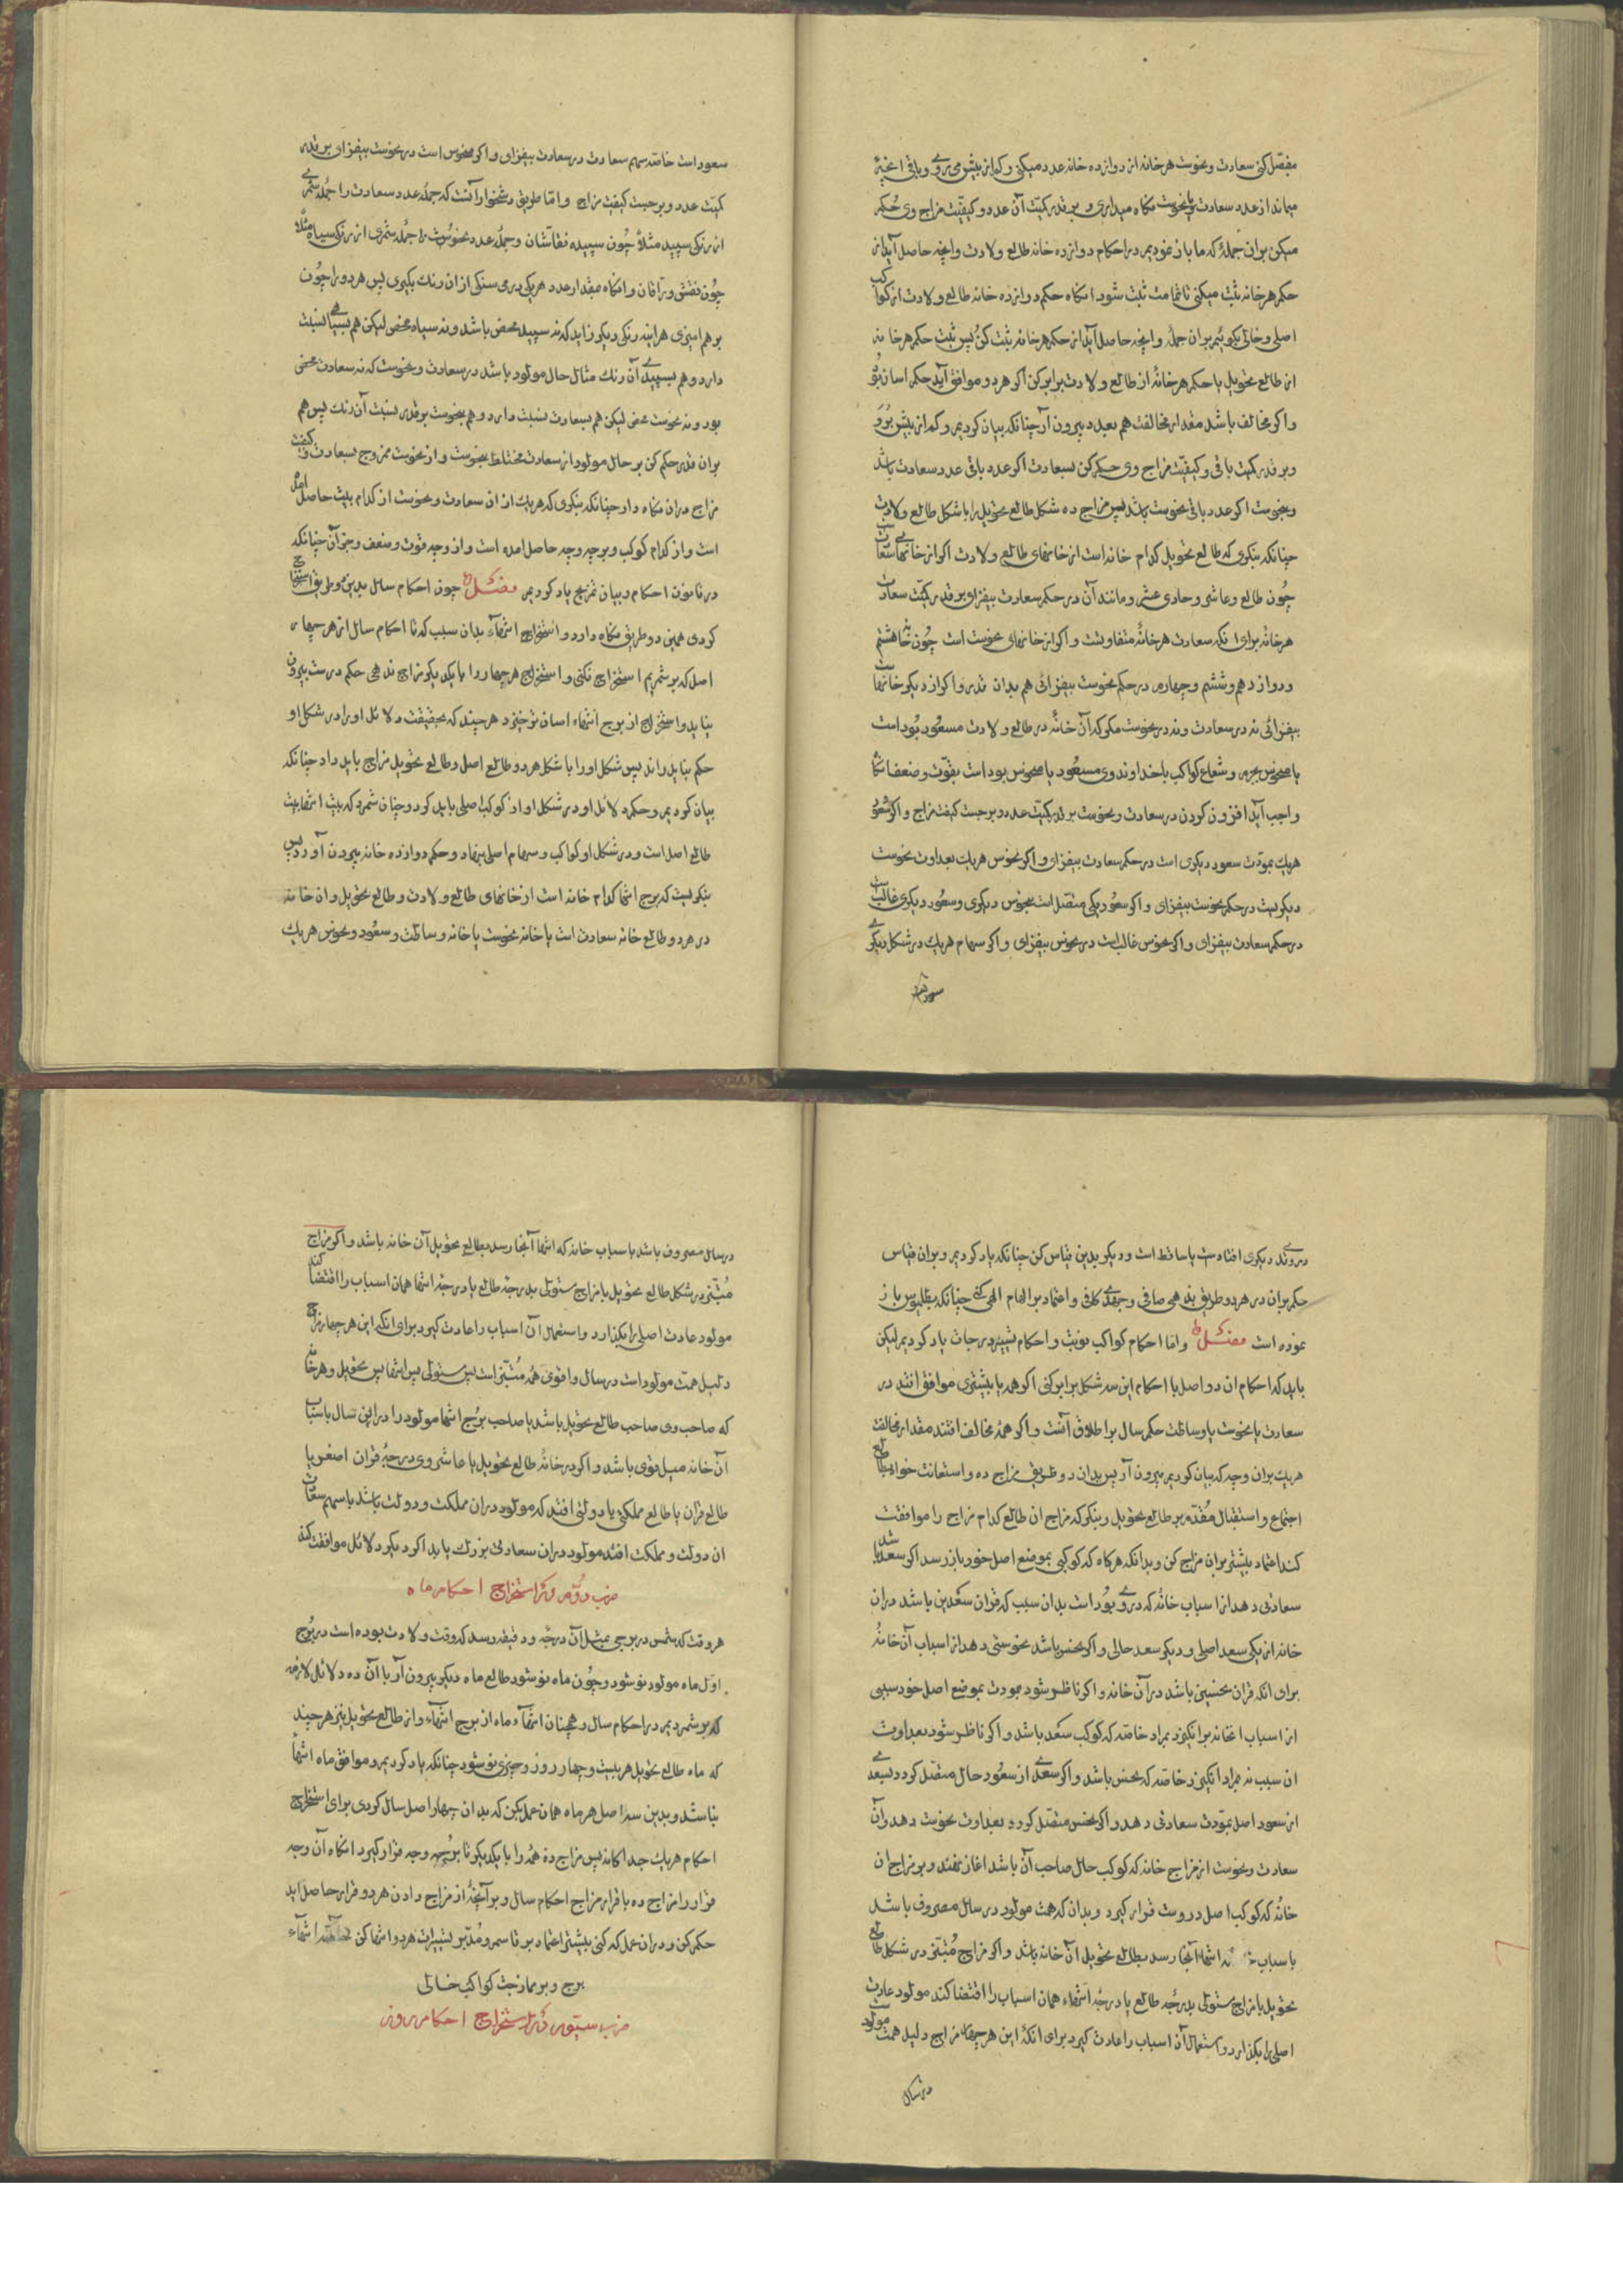 مفصل کن سعادت و نحوست هر خانه از دوازده خانه عدد میکنی و کم از بیش می بری و باقی آنچه
میماند از عدد سعادت یا نحوست نکاه میداری و بر قدر کمیت آن عدد و کیفیت مزاج وی حکم
میکن بران جمله که ما باز نمودیم در احکام دوازده خانه طالع ولادت وانچه حاصل آید از
حکم هر خانه ثبت میکنی تا تمامت ثبت شود انکاه حکم دوازده خانه طالع ولادت از کواکب
اصلی و حالی بکوئیم بران جمله وانچه حاصل آید از حکم هر خانه ثبت کن پس ثبت حکم هر خانه
از طالع تحویل با حکم هر خانه از طالع ولادت برابر کن اکر هر دو موافق آید حکم اسان بود
و اکر مخالف باشد مقدار مخالفت هم بعدد بیرون آر چنانکه بیان کردیم و کم از بیش برو
و بر قدر کمیت باقی و کیفیت مزاج وی حکم کن بسعادت اکر عدد باقی عدد سعادت باشد
و بنحوست اکر عدد باقی نحوست باشد پس مزاج ده شکل طالع تحویل را با شکل طالع ولادت
چنانکه بنکری که طالع تحویل کدام خانه است از خانهای طالع ولادت اکر از خانهای سعادت
چون طالع و عاشر و حادی عشر و مانند آن در حکم سعادت بیفزای بر قدر کمیت سعادت
هر خانه برای انکه سعادت هر خانه متفاوتست و اکر از خانهای نحوست است چون خانه هشتم
و دوازدهم و ششم و چهارم در حکم نحوست بیفزائی هم بدان قدر و اکر از دیکر خانهاست
بیفزائی نه در سعادت و نه در نحوست مکر که آن خانه در طالع ولادت مسعود بود است
یا منحوس بجرم و شعاع کواکب یا خداوند وی مسعود یا منحوس بود است بقوت و ضعف انکاه
واجب آید افزون کردن در سعادت و نحوست بر قدر کمیت عدد و بر حسب کیفیت مزاج و اکر سعود
هریک بمودت سعود دیکری است در حکم سعادت بیفزای و اکر نحوس هریک بعداوت نحوست
دیکریست در حکم نحوست بیفزای و اکر سعود یکی متصل است بنحوس دیکری و سعود دیکری غالبست
در حکم سعادت بیفزای و اکر نحوس غالبست در نحوس بیفزای و اکر سهام هریک در شکل دیکری
سعود است خاصه سهم سعادت در سعادت بیفزای و اکر منحوس است در نحوست بیفزای بر قدر
کمیت عدد و بر حسب کیفیت مزاج و اما طریق دشخوار آنست که جمله عدد سعادت را جمله شمری
از رنکی سپید مثلا چون سپیده نقاشان و جمله عدد نحوست را جمله شمری از رنکی سیاه مثلا
چون نقش وراقان و انکاه مقدار عدد هریکی درمی سنکی از ان رنک بکیری پس هر دو را چون
بر هم امیزی هراینه رنکی دیکر زاید که نه سپید محض باشد و نه سیاه محض لیکن هم بسیاهی نسبت
دارد و هم بسپیدی آن رنک مثال حال مولود باشد در سعادت و نحوست که نه سعادت محض
بود و نه نحوست محض لیکن هم بسعادت نسبت دارد و هم بنحوست بر قدر نسبت آن رنک پس هم
بران قدر حکم کن بر حال مولود از سعادت مختلط بنحوست و از نحوست ممزوج بسعادت و کیفیت
مزاج دران نکاه دار چنانکه بنکری که هریک از ان سعادت و نحوست از کدام بیت حاصل امده
است و از کدام کوکب و بر چه وجه حاصل امده است و از وجه قوت و ضعف و جز آن چنانکه
در قانون احکام و بیان تمزیج یاد کردیم فصل چون احکام سال بدین دو طریق استخراج
کردی همین دو طریق نکاه دار در استخراج انتهاء بدان سبب که تا احکام سال از هر چهار
اصل که بر شمردیم استخراج نکنی و استخراج هر چهار را با یکدیکر مزاج ندهی حکم درست بیرون
نیاید و استخراج از برج انتهاء اسان تر خیزد هرچند که بحقیقت دلائل او را در شکل او
حکم بباید راند پس شکل او را با شکل هر دو طالع اصل و طالع تحویل مزاج باید داد چنانکه
بیان کردیم و حکم دلائل او در شکل او از کوکب اصلی باید کرد و چنان شمرد که بیت انتها بیت
طالع اصل است و در شکل او کواکب و سهام اصلی بنهاد و حکم دوازده خانه بیرون آورد پس
بنکریست که برج انتها کدام خانه است از خانهای طالع ولادت و طالع تحویل و ان خانه
در هر دو طالع خانه سعادت است یا خانه نحوست یا خانه وساطت و سعود و نحوس هریک
در وتد دیکری افتادست یا ساقط است و دیکر بدین قیاس کن چنانکه یاد کردیم و بران قیاس
حکم بران در هر دو طریق بذهنی صافی و جهدی کافی و اعتماد بر الهام الهی کن چنانکه بطلمیوس باز
نموده است فصل و اما احکام کواکب نوبت و احکام تسییر درجات یاد کردیم لیکن
باید که احکام ان دو اصل با احکام این سه شکل برابر کنی اکر همه یا بیشتری موافق افتند در
سعادت یا نحوست یا وساطت حکم سال بر اطلاق آنست و اکر همه مخالف افتند مقدار مخالفت
هریک بران وجه که بیان کردیم بیرون آر پس بدان دو طریق مزاج ده و استعانت خواه بطالع
اجتماع و استقبال مقدم بر طالع تحویل و بنکر که مزاج ان طالع کدام مزاج را موافقت
کند اعتماد بیشتر بران مزاج کن و بدانکه هرکاه که کوکبی بموضع اصل خود باز رسد اکر سعد باشد
سعادتی دهد از اسباب خانه که در وی بود است بدان سبب که قران سعدین باشد دران
خانه از یکی سعد اصلی و دیکر سعد حالی و اکر نحس باشد نحوستی دهد از اسباب آن خانه
برای انکه قران نحسین باشد در آن خانه و اکر ناظر شود بمودت بموضع اصل خود سببی
از اسباب انخانه برانکیزد بمراد خاصه که کوکب سعد باشد و اکر ناظر شود بعداوت
ان سبب نه بمراد انکیزد خاصه که نحس باشد و اکر سعدی از سعود حال متصل کردد بسعدی
از سعود اصل بمودت سعادتی دهد و اکر نحس متصل کردد بعداوت نحوست دهد و آن
سعادت و نحوست از مزاج خانه که کوکب حال صاحب آن باشد اغاز نهند و بر مزاج ان
خانه که کوکب اصل دروست قرار کیرد و بدان که همت مولود در سال مصروف باشد
باسباب انتها آنجا رسد بطالع تحویل ان خانه باشد و اکر مزاج مبتز در شکل طالع
تحویل با مزاج مستولی بدرجه طالع یا درجه انتهاء همان اسباب را اقتضا کند مولود عادت
اصلی را بکذارد و استعمال آن اسباب را عادت کیرد برای انکه این هر چهار مزاج دلیل همت مولود
در سال
در سال مصروف باشد باسباب خانه که انتها آنجا رسد بطالع تحویل آن خانه باشد و اکر مزاج
مبتز در شکل طالع تحویل با مزاج مستولی بدرجه طالع یا درجه انتها همان اسباب را اقتضا کند
مولود عادت اصلی را بکذارد و استعمال آن اسباب را عادت کیرد برای انکه این هر چهار مزاج
دلیل همت مولود است در سال و اقوی همه مبتز است پس مستولی پس انتها پس تحویل و هر خانه
که صاحب وی صاحب طالع تحویل باشد یا صاحب برج انتها مولود را در این سال باسباب
آن خانه میل قوی باشد و اکر در خانه طالع تحویل یا عاشر وی درجه قران اصغر یا
طالع قران یا طالع مملکتی یا دولتی افتد که مولود دران مملکت و دولت باشد یا سهم سعادت
ان دولت و مملکت افتد مولود دران سعادتی بزرک یابد اکر دیکر دلائل موافقت کند
ضرب دوم در استخراج احکام ماه
هر وقت که شمس در برجی بمثل آن درجه و دقیقه رسد که وقت ولادت بوده است در برج
اول ماه مولود نو شود و چون ماه نو شود طالع ماه دیکر بیرون آر با آن ده دلائل لازمه
که بر شمردیم در احکام سال و همچنان انتهاء ماه از برج انتهاء و از طالع تحویل نیز هر چند
که ماه طالع تحویل هر بیست و چهار روز و چیزی نو شود چنانکه یاد کردیم و موافق ماه انتها
نباشد و بدین سه اصل هر ماه همان عمل بکن که بدان چهار اصل سال کردی برای استخراج
احکام هریک جداکانه پس مزاج ده همه را با یکدیکر تا بر چه وجه قرار کیرد انکاه آن وجه
قرار را مزاج ده با قرار مزاج احکام سال و بر آنچه از مزاج دادن هر دو قرار حاصل اید
حکم کن و دران عمل که کنی بیشتر اعتماد بر قاسم و مدبر تسییرات هر دو انتها کن انتهاء
برج و بر ممازجت کواکب حالی
ضرب سیوم در استخراج احکام روز